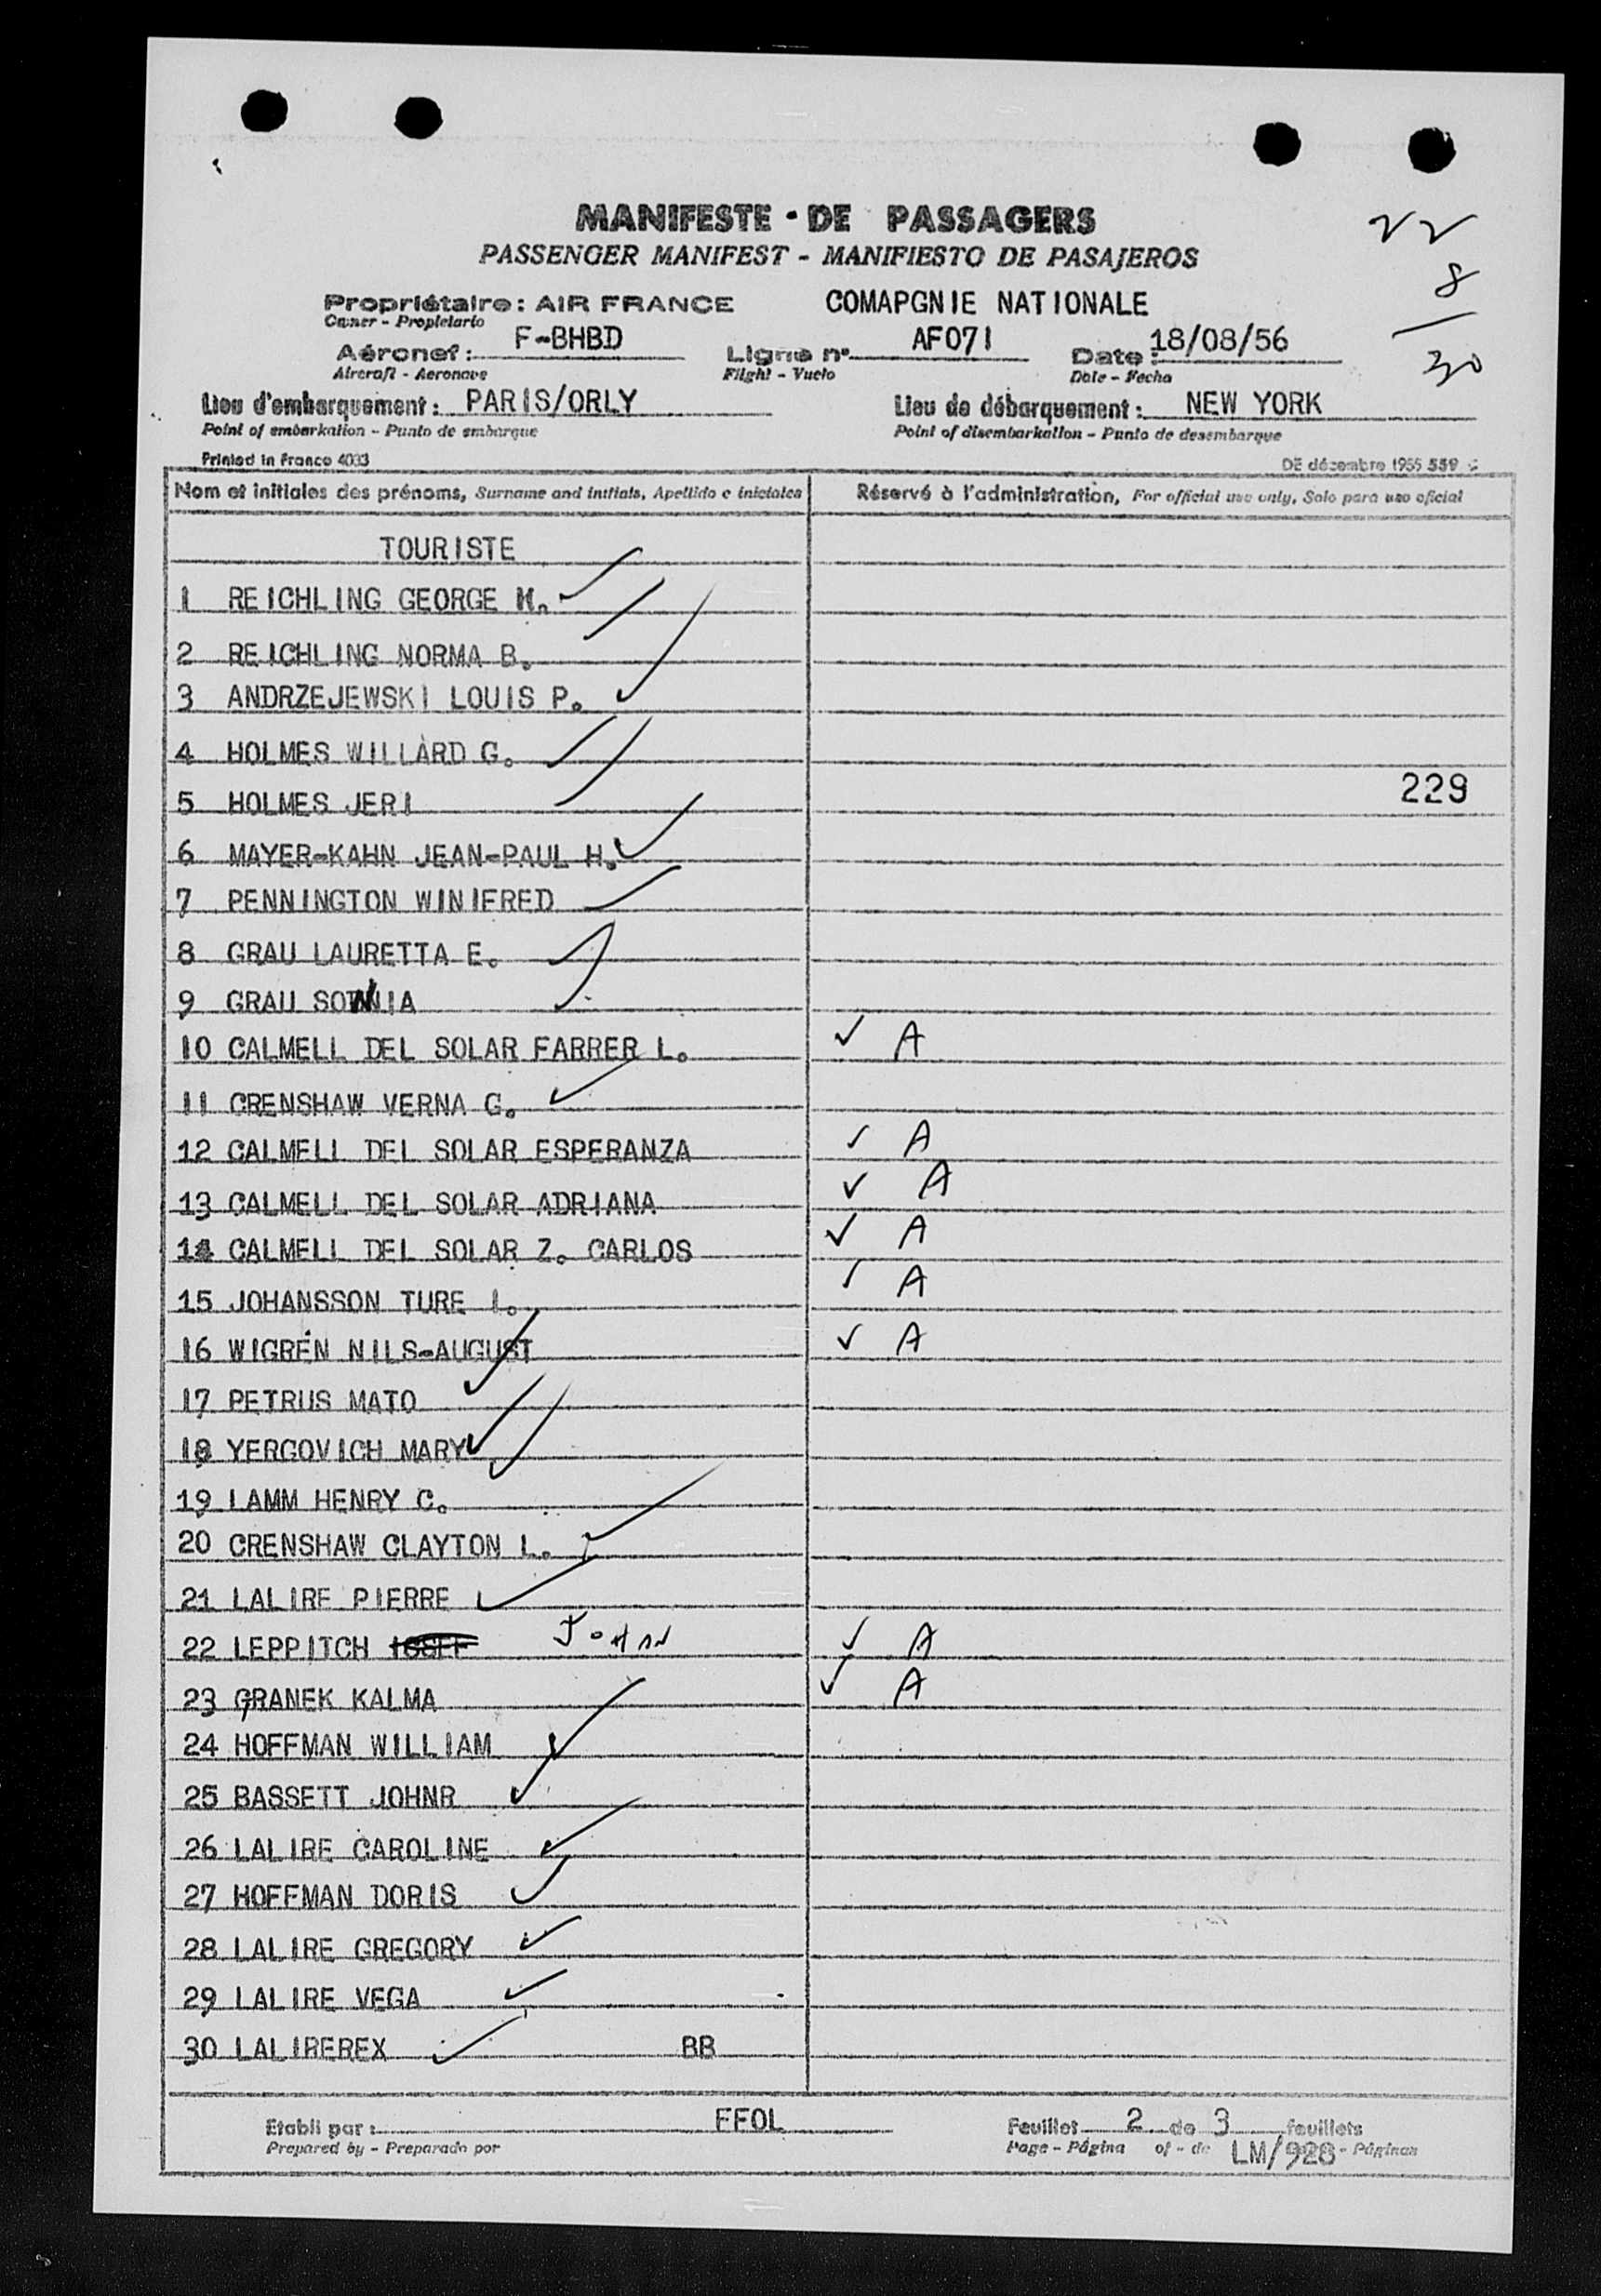 MANIFESTE - DE PASSAGERS
PASSENGER MANIFEST - MANIFIESTO DE PASAJEROS
22
8
30
Propriétaire : AIR FRANCE COMAPGNIE NATIONALE
Owner - Propietario
Aéronef : F-BHBD Ligne n° AF071 Date : 18/08/56
Aircraft - Aeronave Flight - Vuelo Date - Fecha
Lieu d'embarquement : PARIS/ORLY Lieu de débarquement : NEW YORK
Point of embarkation - Punto de embarque Point of disembarkation - Punto de desembarque
Printed in France 4033 DE décembre 1955 559
Nom et initiales des prénoms, Surname and initials, Apellido e iniciales Réservé à l'administration, For official use only, Solo para uso oficial
TOURISTE
1 REICHLING GEORGE H. ✓
2 REICHLING NORMA B.
3 ANDRZEJEWSKI LOUIS P. ✓
4 HOLMES WILLARD G. ✓
5 HOLMES JERI 229
6 MAYER-KAHN JEAN-PAUL H. ✓
7 PENNINGTON WINIFRED ✓
8 GRAU LAURETTA E. ✓
9 GRAU SONIA ✓
10 CALMELL DEL SOLAR FARRER L. ✓ A
11 CRENSHAW VERNA G. ✓
12 CALMELL DEL SOLAR ESPERANZA ✓ A
13 CALMELL DEL SOLAR ADRIANA ✓ A
14 CALMELL DEL SOLAR Z. CARLOS ✓ A
15 JOHANSSON TURE I. ✓ A
16 WIGREN NILS-AUGUST ✓ A
17 PETRUS MATO ✓
18 YERGOVICH MARY ✓
19 LAMM HENRY C. ✓
20 CRENSHAW CLAYTON L. ✓
21 LALIRE PIERRE ✓
22 LEPPITCH JOHN ✓ A
23 GRANEK KALMA ✓ A
24 HOFFMAN WILLIAM ✓
25 BASSETT JOHNR ✓
26 LALIRE CAROLINE ✓
27 HOFFMAN DORIS ✓
28 LALIRE GREGORY ✓
29 LALIRE VEGA ✓
30 LALIREREX ✓ BB
Etabli par : EFOL Feuillet 2 de 3 feuillets
Prepared by - Preparado por Page - Página of - de LM/928 - Páginas